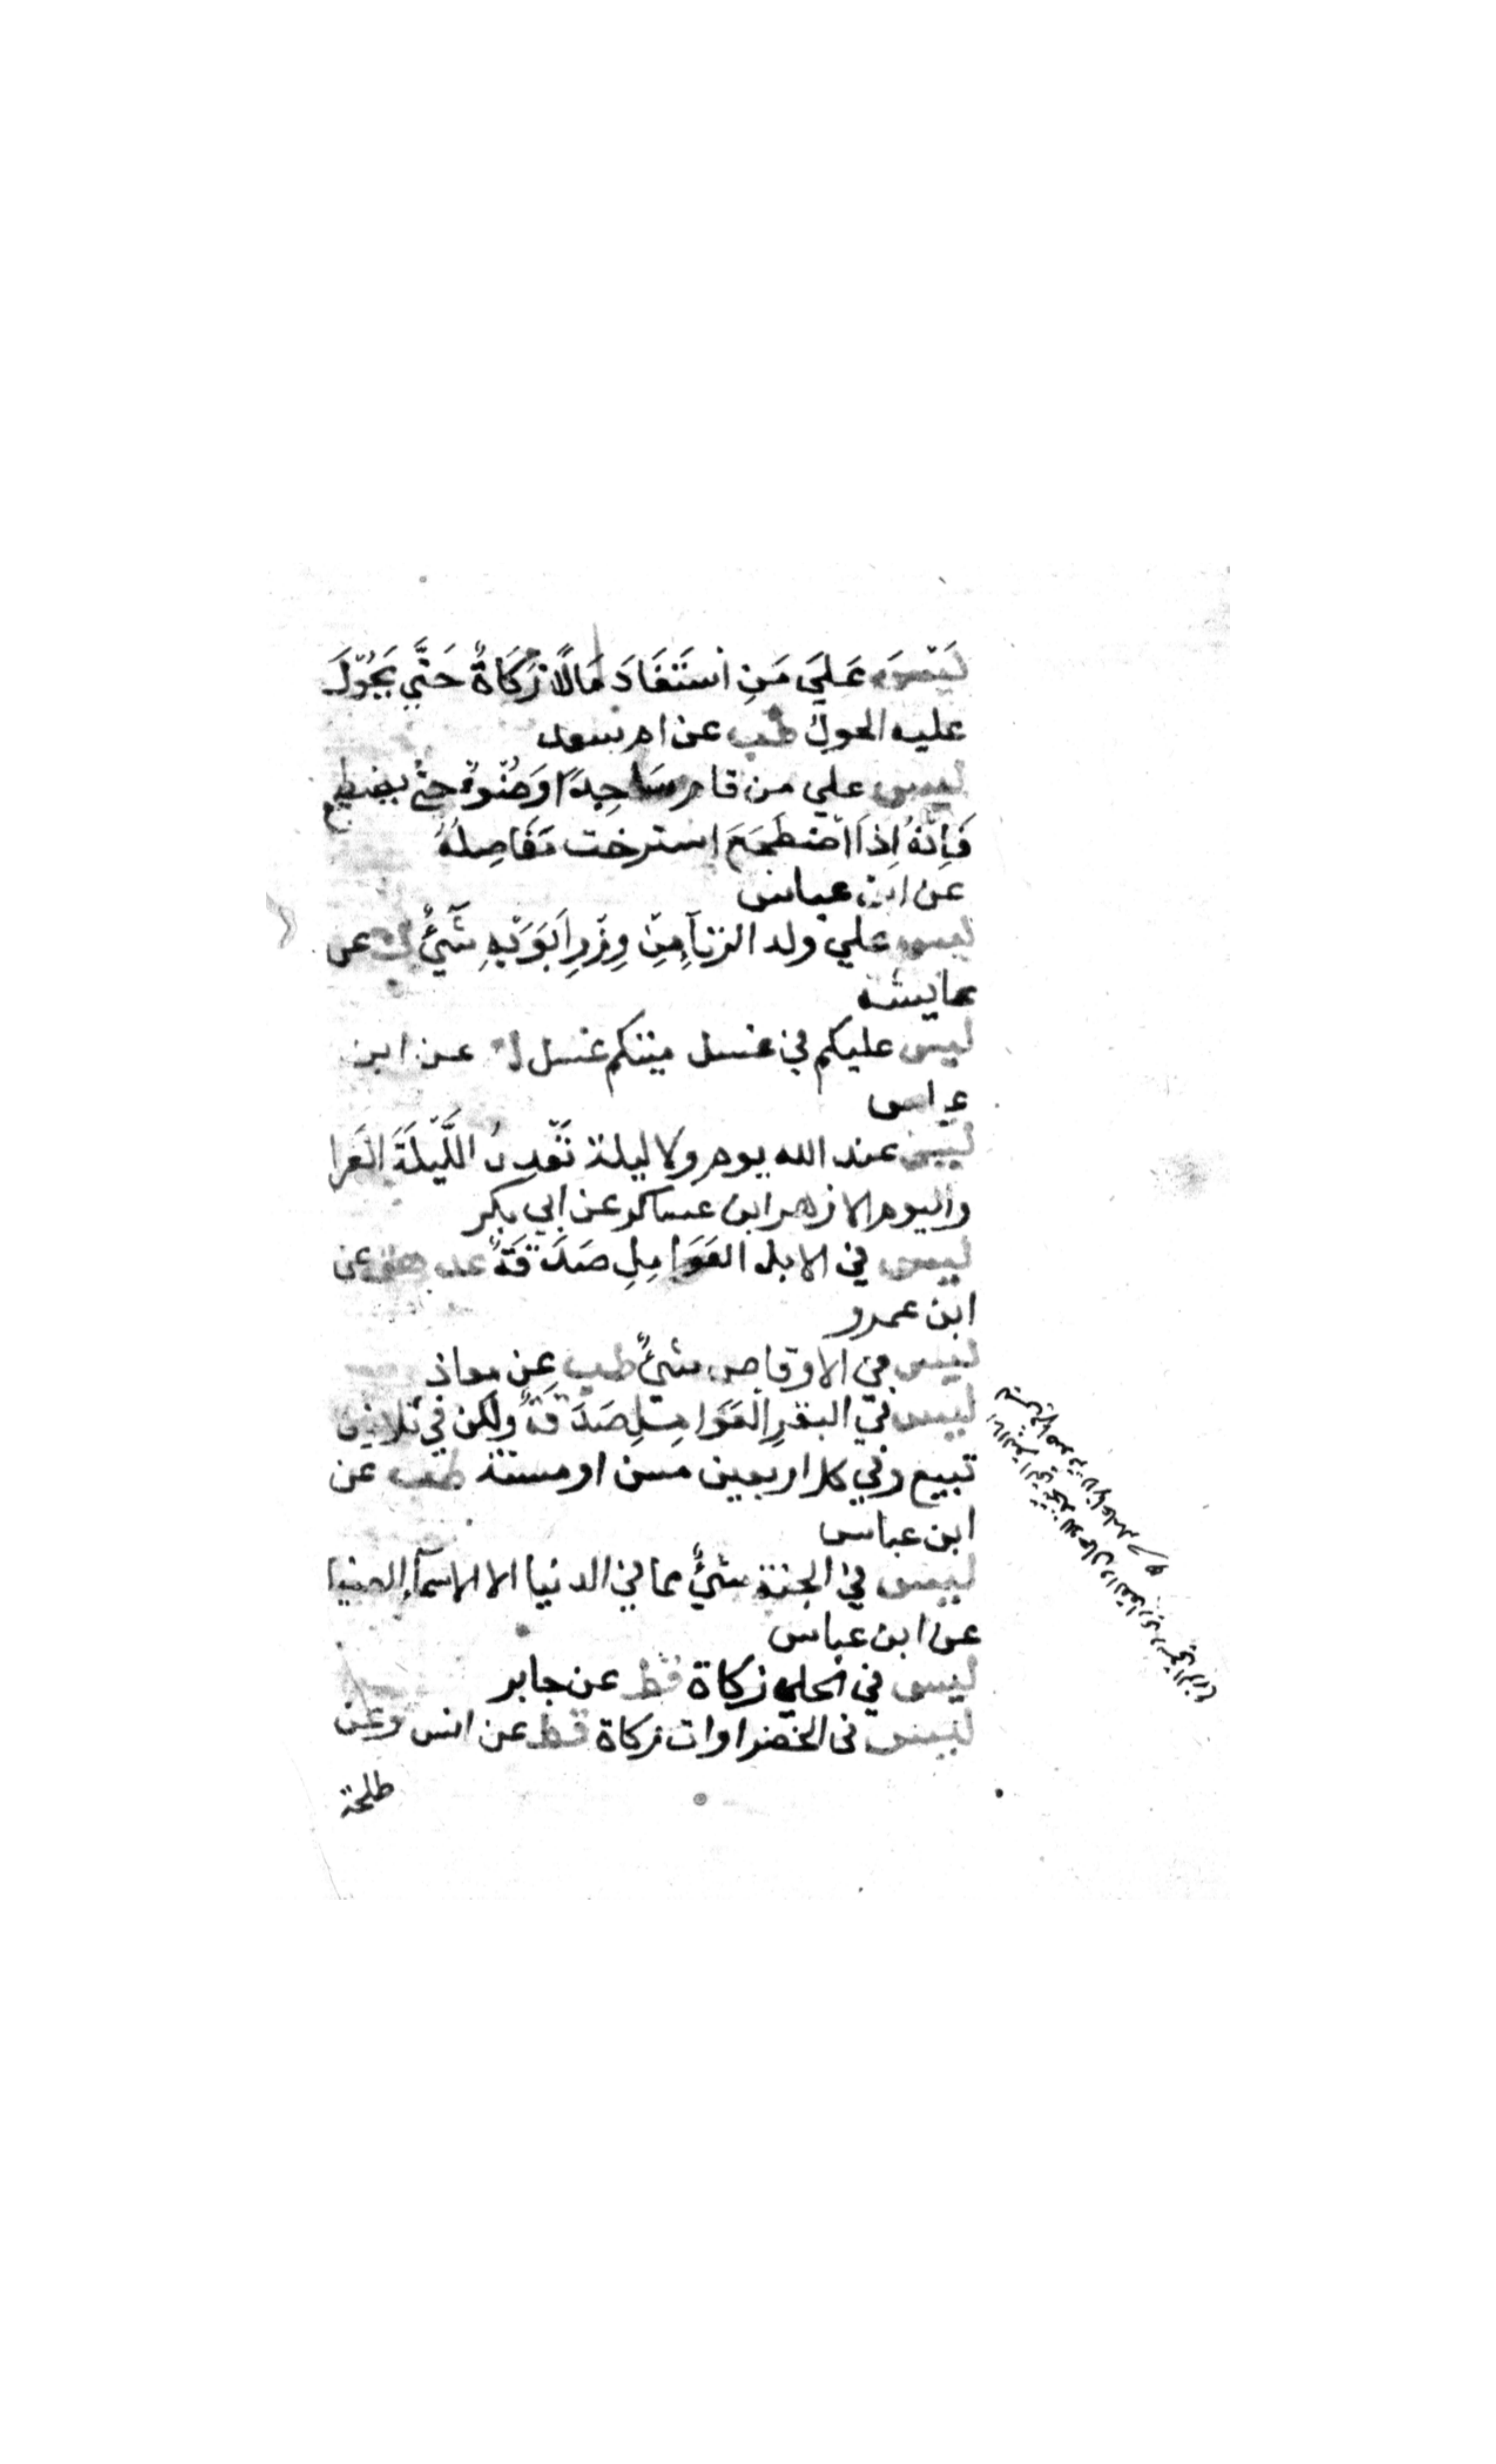 لَيْسَ عَلَيَ مَنِ اسْتَفَادَ مَالًا زَكَاةٌ حَتَّي يَحُوْلَ
عليه الحول طب عن ام سعد
ليس علي من نام سَاجِدًا وَضُوْءٌ حتي يضطجع
فَاِنَّهُ اِذَا اضْطَجَعَ استرخت مَفَاصِلُهُ
عن ابن عباس
ليس علي ولد الزنآ مِنْ وِزْرِ اَبَوَيْهِ شَيْءٌ ك عن
عايشه
ليس عليكم في غسل ميتكم غسل ك عن ابن
عباس
لَيْسَ عند الله يوم ولا ليلة تَعْدِلُ اللَّيْلَةَ الغَرا
واليوم الازهر ابن عساكر عن ابي بكر
ليس في الابل العَوَامِلِ صَدَقَةٌ عد هق عن
ابن عمرو
ليس في الاوقاص شيءٌ طب عن معاذ
ليس في البقرِ العَوَامِلِ صَدَقَةٌ ولكن في ثلاثين
تبيع وفي كل اربعين مسن او مسنة طب عن
ابن عباس
ليس في الجنة شيءٌ مما في الدنيا الا الاسمآ الضيا
عن ابن عباس
ليس في الحلي زكاة قط عن جابر
ليس في الخضراوات زكاة قط عن انس وعن
طلحة